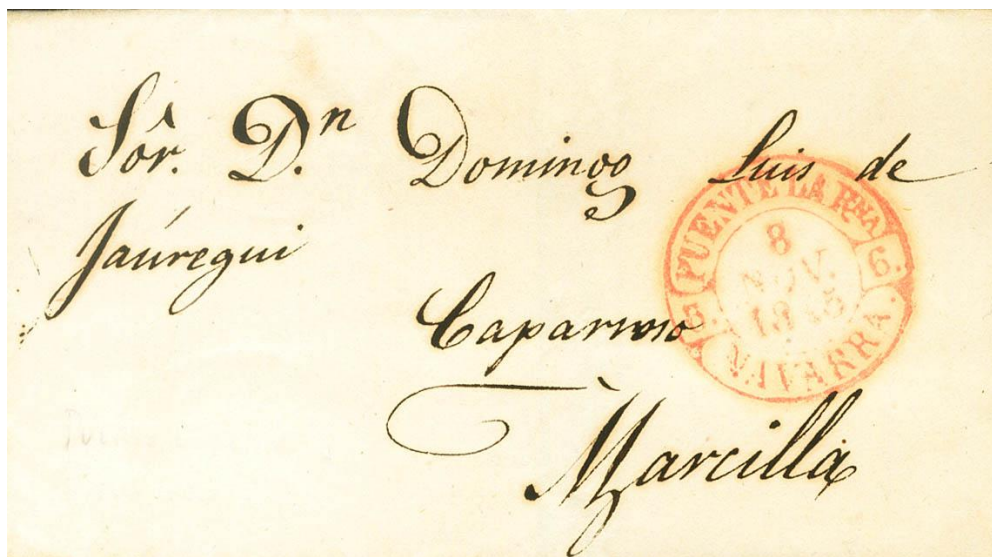 Sôr. D.ⁿ Domingo Luis de
Jaúregui
Caparroso
à Marcilla
PUENTE LA Rna
6.
8
NOV.
NAVARRA.